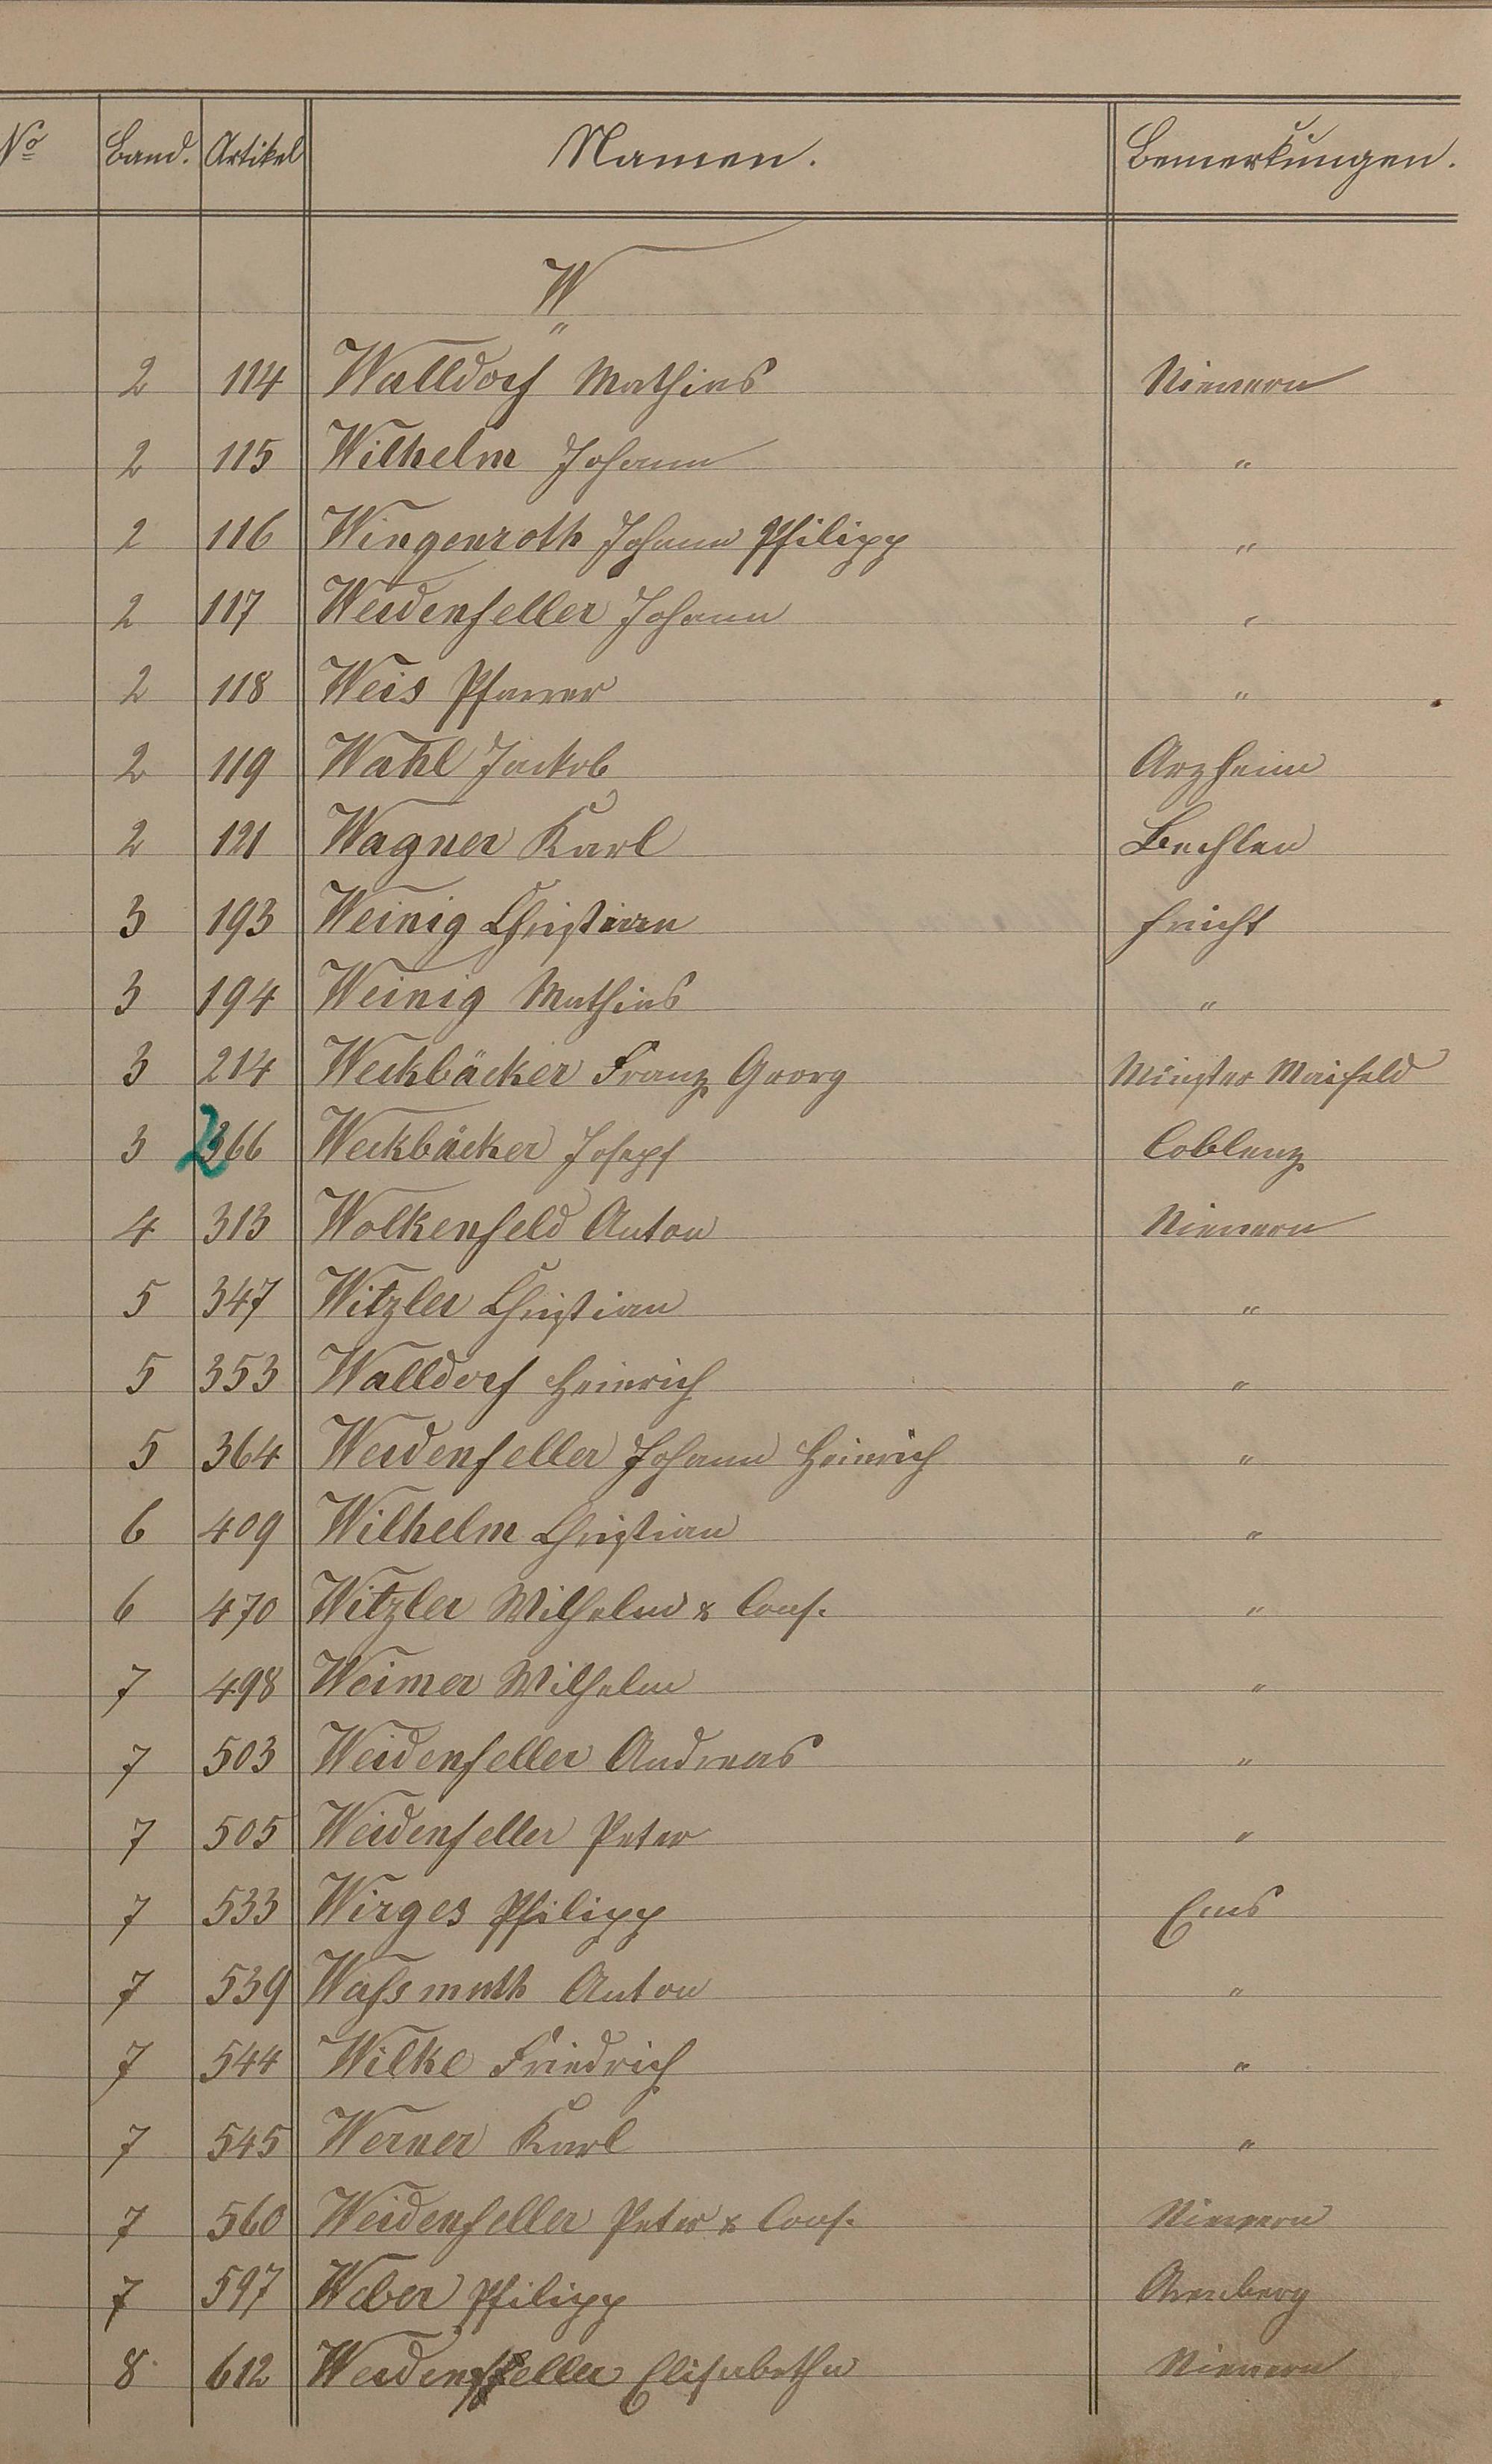 No Band. Artikel Namen. Bemerkungen.
W
"
2 114 Walldorf Mathias Nievern
2 115 Wilhelm Johann "
2 116 Wingenroth Johann Philipp "
2 117 Weidenfeller Johann "
2 118 Weis Pfarrer "
2 119 Wahl Jackob Arzheim
2 121 Wagner Karl Bechlen
3 193 Weinig Christian Frücht
3 194 Weinig Mathias "
3 214 Weckbäcker Franz Georg Münster Maifeld
3 366 Weckbäcker Josepf Coblenz
4 313 Wolkenfeld Anton Nievern
5 347 Witzler Christian "
5 353 Walldorf Heinrich "
5 364 Weidenfeller Johann Heinrich "
6 409 Wilhelm Christian "
6 470 Witzler Wilhelm & Cons. "
7 498 Weimer Wilhelm "
7 503 Weidenfeller Andreas "
7 505 Weidenfeller Peter "
7 533 Wirges Philipp Ems
7 539 Wassmuth Anton "
7 544 Wilke Friedrich "
7 545 Werner Karl "
7 560 Weidenfeller Peter & Cons. Nievern
7 597 Weber Philipp Arenberg
8 612 Weidenfeller Elisabetha Nievern